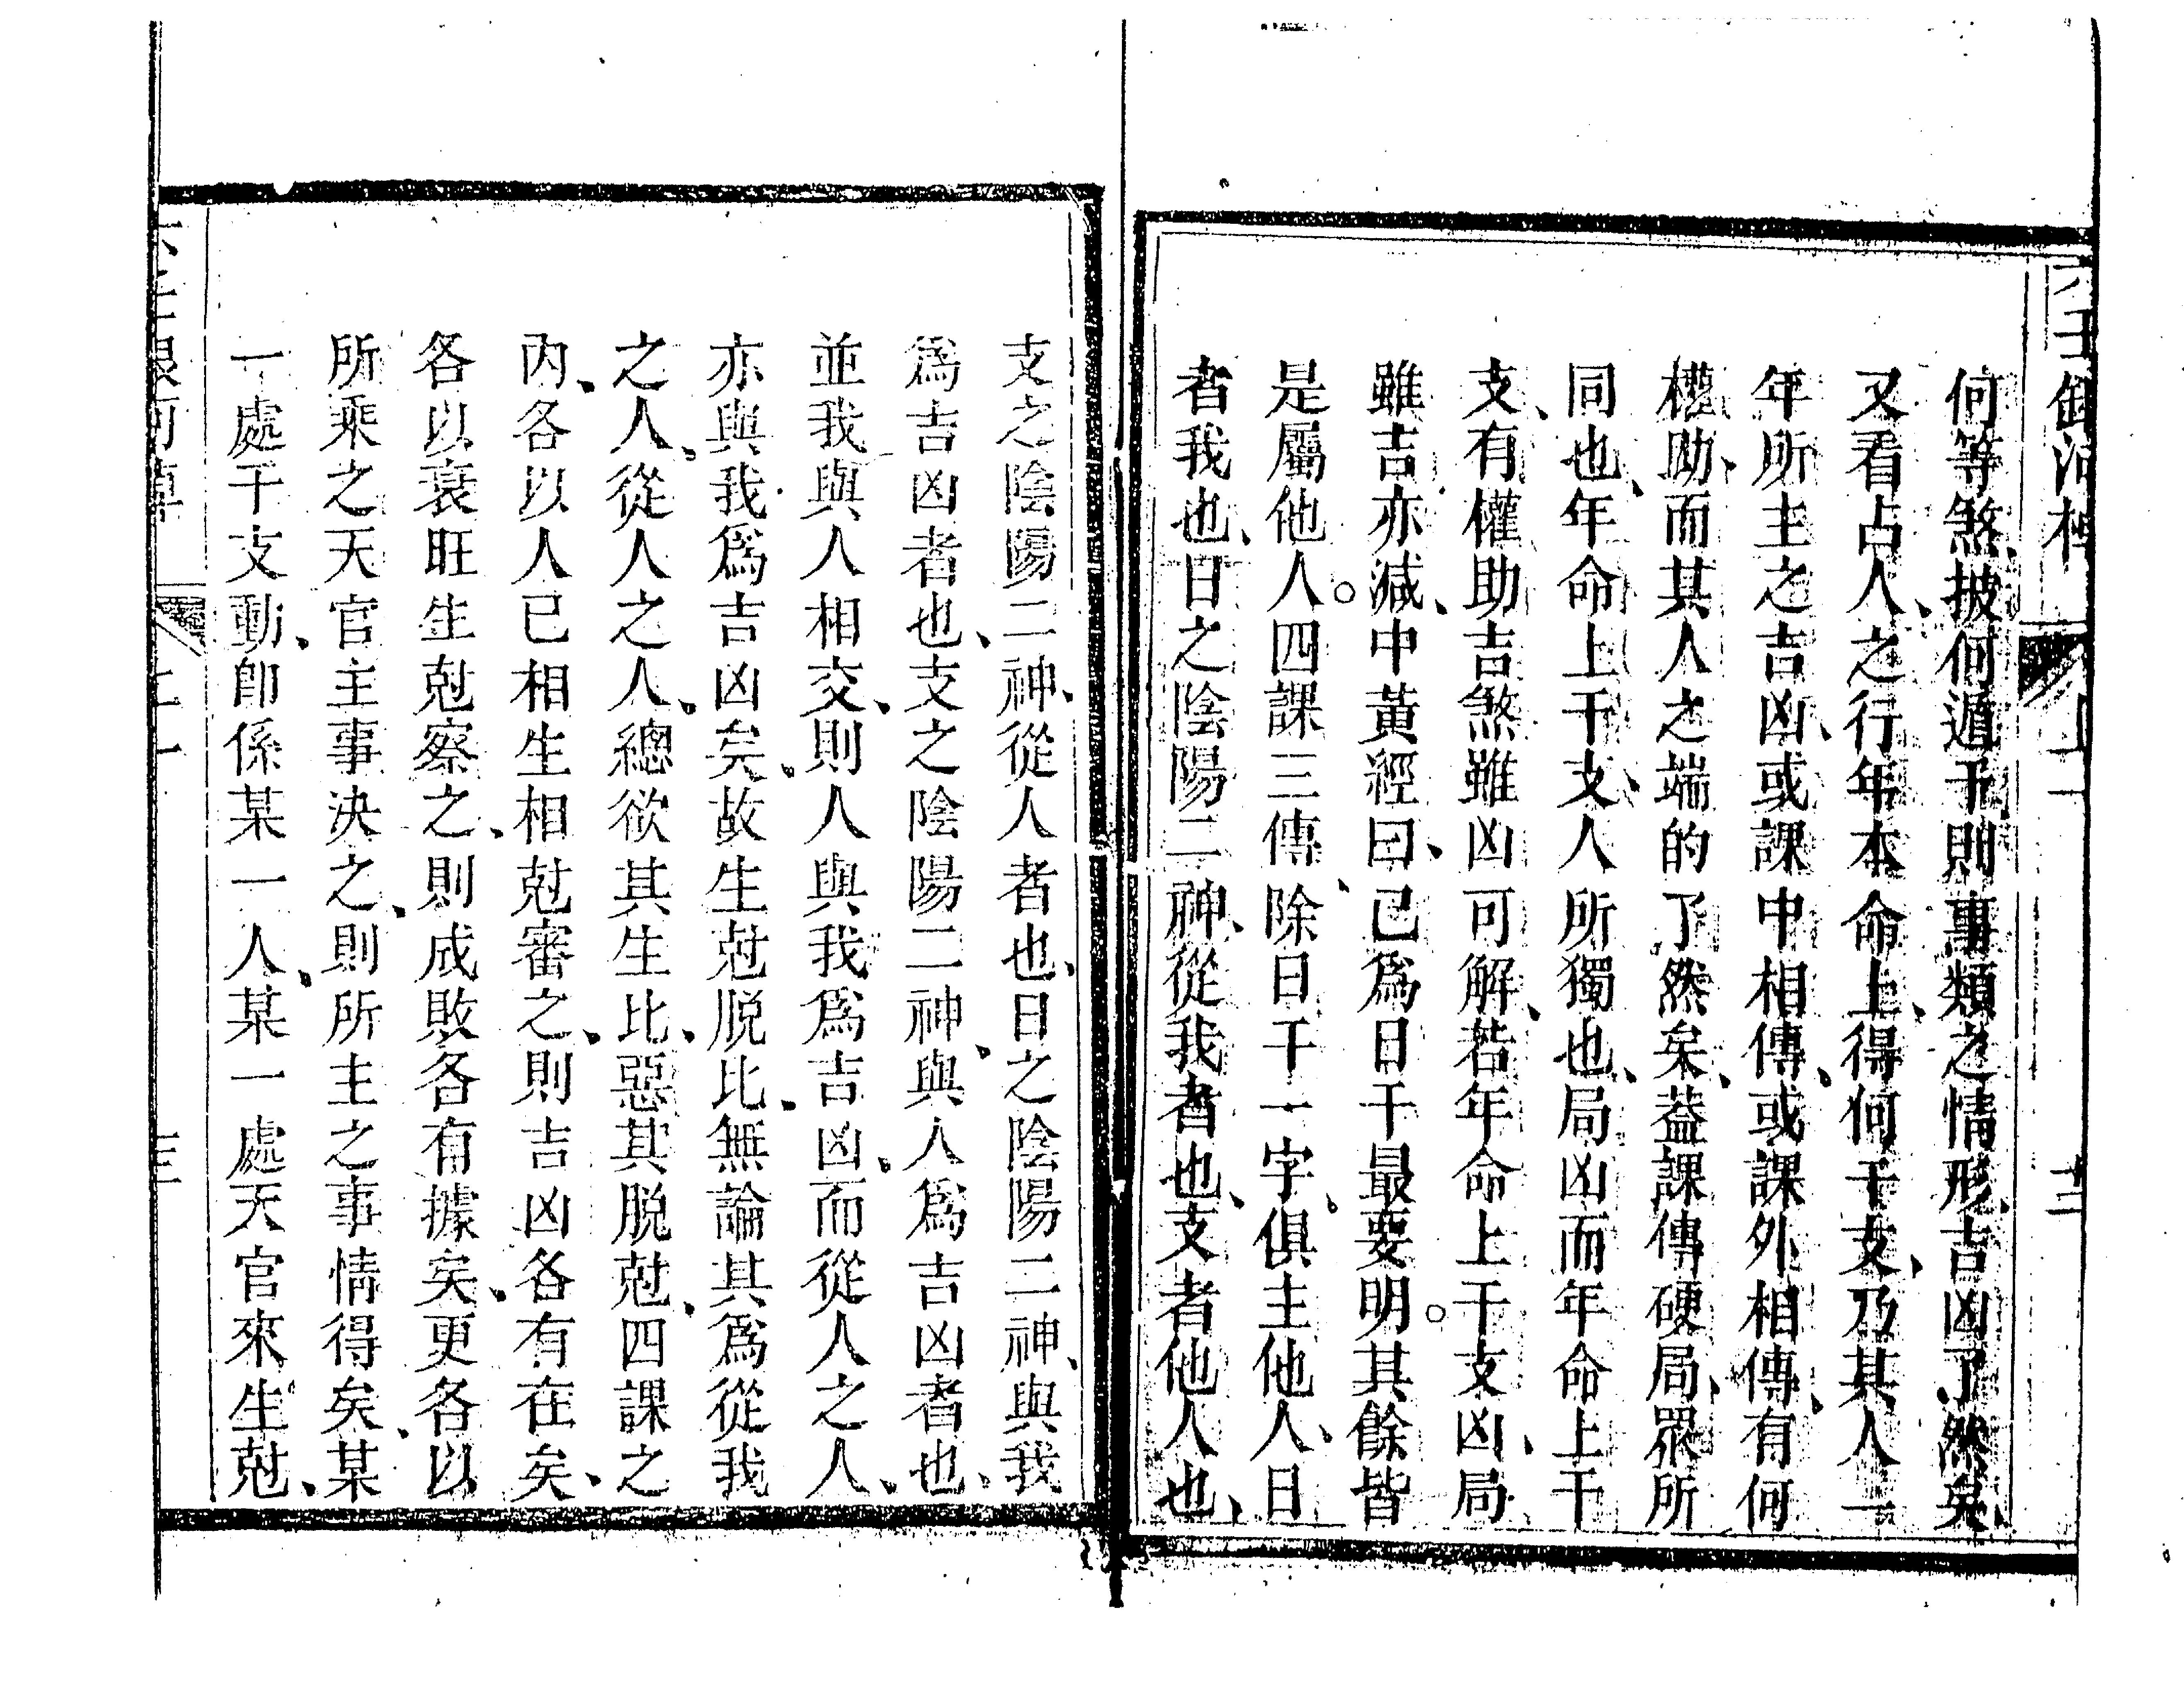 何等煞、披何遁干、則事類之情形、吉凶了然矣、
又看占人、之行年本命上、得何干支、乃其人一
年所主之吉凶、或課中相傳、或課外相傳、有何
權助、而其人之端的了然矣、葢課傳硬局、眾所
同也、年命上干支、人所獨也、局凶而年命上干
支、有權助吉煞、雖凶可解、若年命上干支凶、局
雖吉亦減、中黃經曰、己爲日干最要明。其餘皆
是屬他人。四課三傳、除日干一字。俱主他人、日
者我也、日之陰陽二神、從我者也、支者他人也、
支之陰陽二神、從人者也、日之陰陽二神、與我
爲吉凶者也、支之陰陽二神、與人爲吉凶者也、
並我與人相交、則人與我爲吉凶、而從人之人、
亦與我爲吉凶矣、故生尅脱比、無論其爲從我
之人、從人之人、總欲其生比、惡其脱尅、四課之
內、各以人已相生相尅審之、則吉凶各有在矣、
各以衰旺生尅察之、則成敗各有據矣、更各以
所乘之天官主事决之、則所主之事情得矣、某
一處干支動、卽係某一人、某一處天官來生尅、